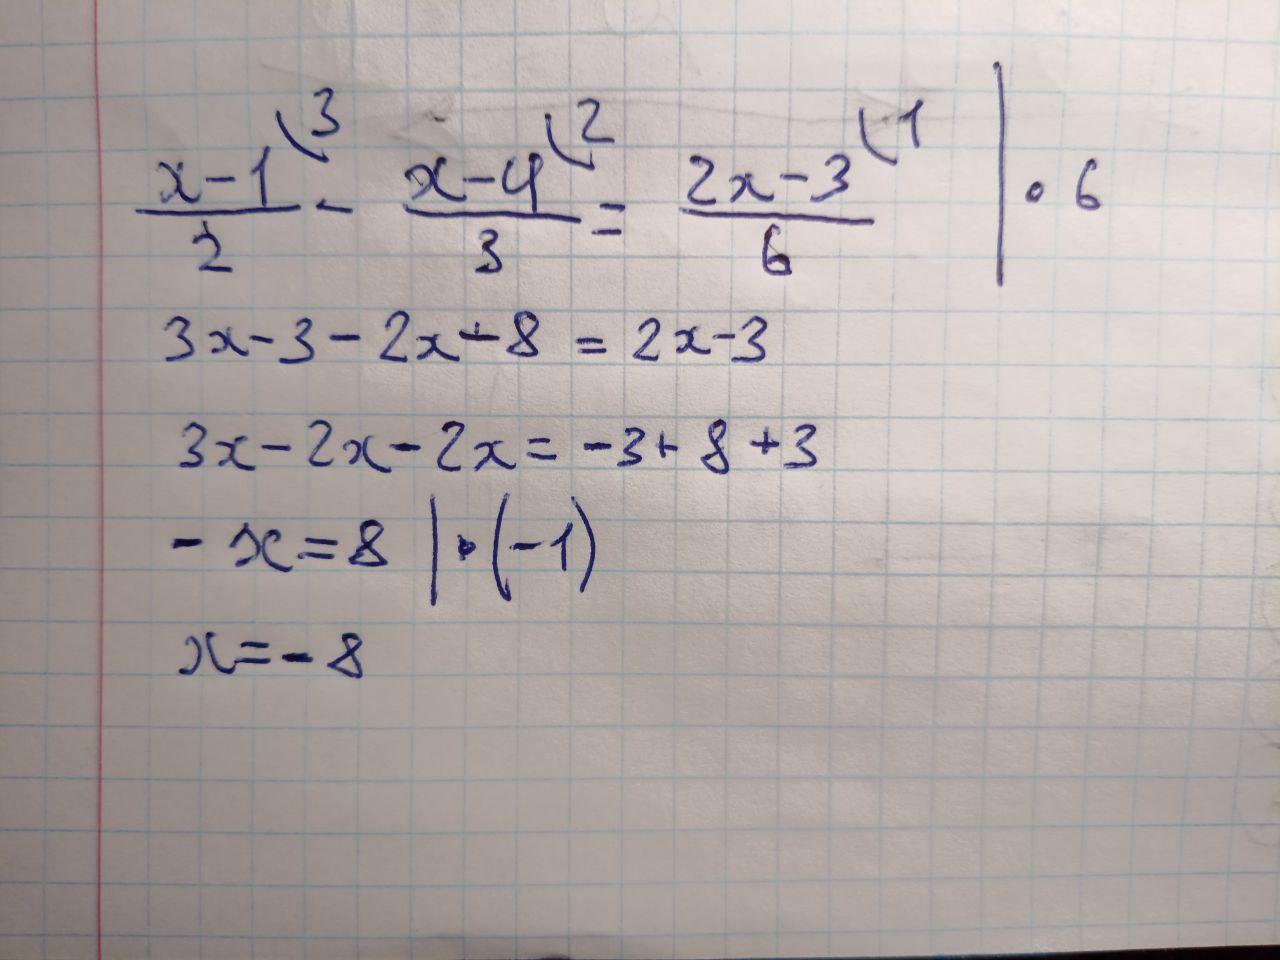 x-1/2 (3 - x-4/3 (2 = 2x-3/6 (1 | · 6
3x-3-2x+8 = 2x-3
3x-2x-2x=-3+8+3
-x=8 |·(-1)
x=-8